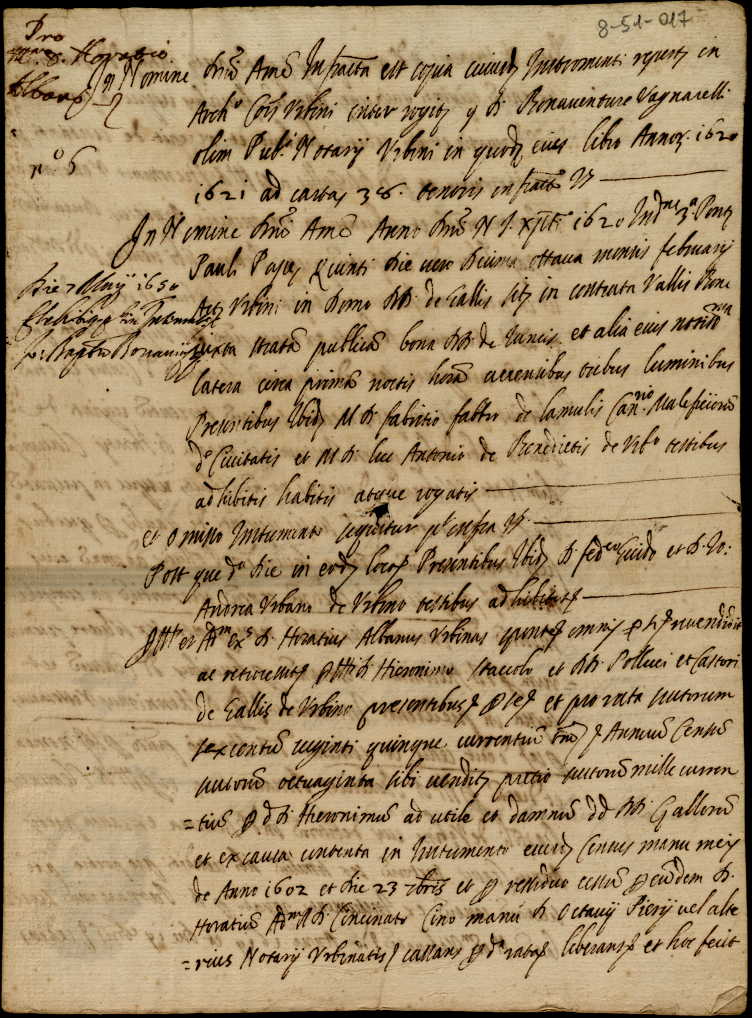 8-51-017
Pro
Horatio
Albano
n.º 6
In Nomine Dñi Amē Infrāta est copia cuiusdā Instromenti reperti in
Archº Coīs Urbini inter rogitꝫ q Dī Bonaventure Vagnarelli
olim Pubꝫ Notarij Urbini in quodꝫ eius libro Annoꝫ 1620
1621 ad cartas 38. tenoris infrāti Vꝫ
In Nomine Dñi Amē Anno Dñi N. J. Xpti 1620 Indne 3ª Pontꝫ
Pauli Papę Quinti Die vero Decima octava mensis februarij
Die 7 Maij 1650
Actꝫ Urbini in Domo DD. de Gallis sitꝫ in contrata Vallis Bone
iuxta stratā publicā bona DD. de Iuncis et alia eius
latera circa primā noctis horā accensibus tribus luminibus
Presentibus Ibidꝫ M D. fabritio fabbr de lamulis Canrio Maleficiorū
dº Civitatis et M D. luc Antonio de Benedictis de Urbº testibus
adhibitis habitis atque rogatis
et omisso Instrumento sequitur infra Vꝫ
Post que dª Die in eodꝫ loco Presentibus Ibidꝫ D. fedco Guido et D. Io:
Andrea Urbano de Urbino testibus adhibitis
Horatius Albanus Urbinas sponte omni revendidit
ac retrocessit Hieronimo Staccolo et DD. Polluci et Castori
de Gallis de Urbino presentibus et pro rata scutorum
sexcentū viginti quinque currentiū Annuū Censū
scutorū octuaginta sibi venditꝫ pretio scutorū mille curren
=tiū D. Hieronimū ad utile et damnū dd. DD. Gallorū
et ex causa contenta in Instrumento eiusdꝫ Census manu mei
de Anno 1602 et Die 23 7bris et residuo cessū eūdem D.
Horatiū D. Cincinato Cino manū D. Octavij Pierij vel alte
=rius Notarij Urbinatis cassans dª rata liberans et hoc fecit